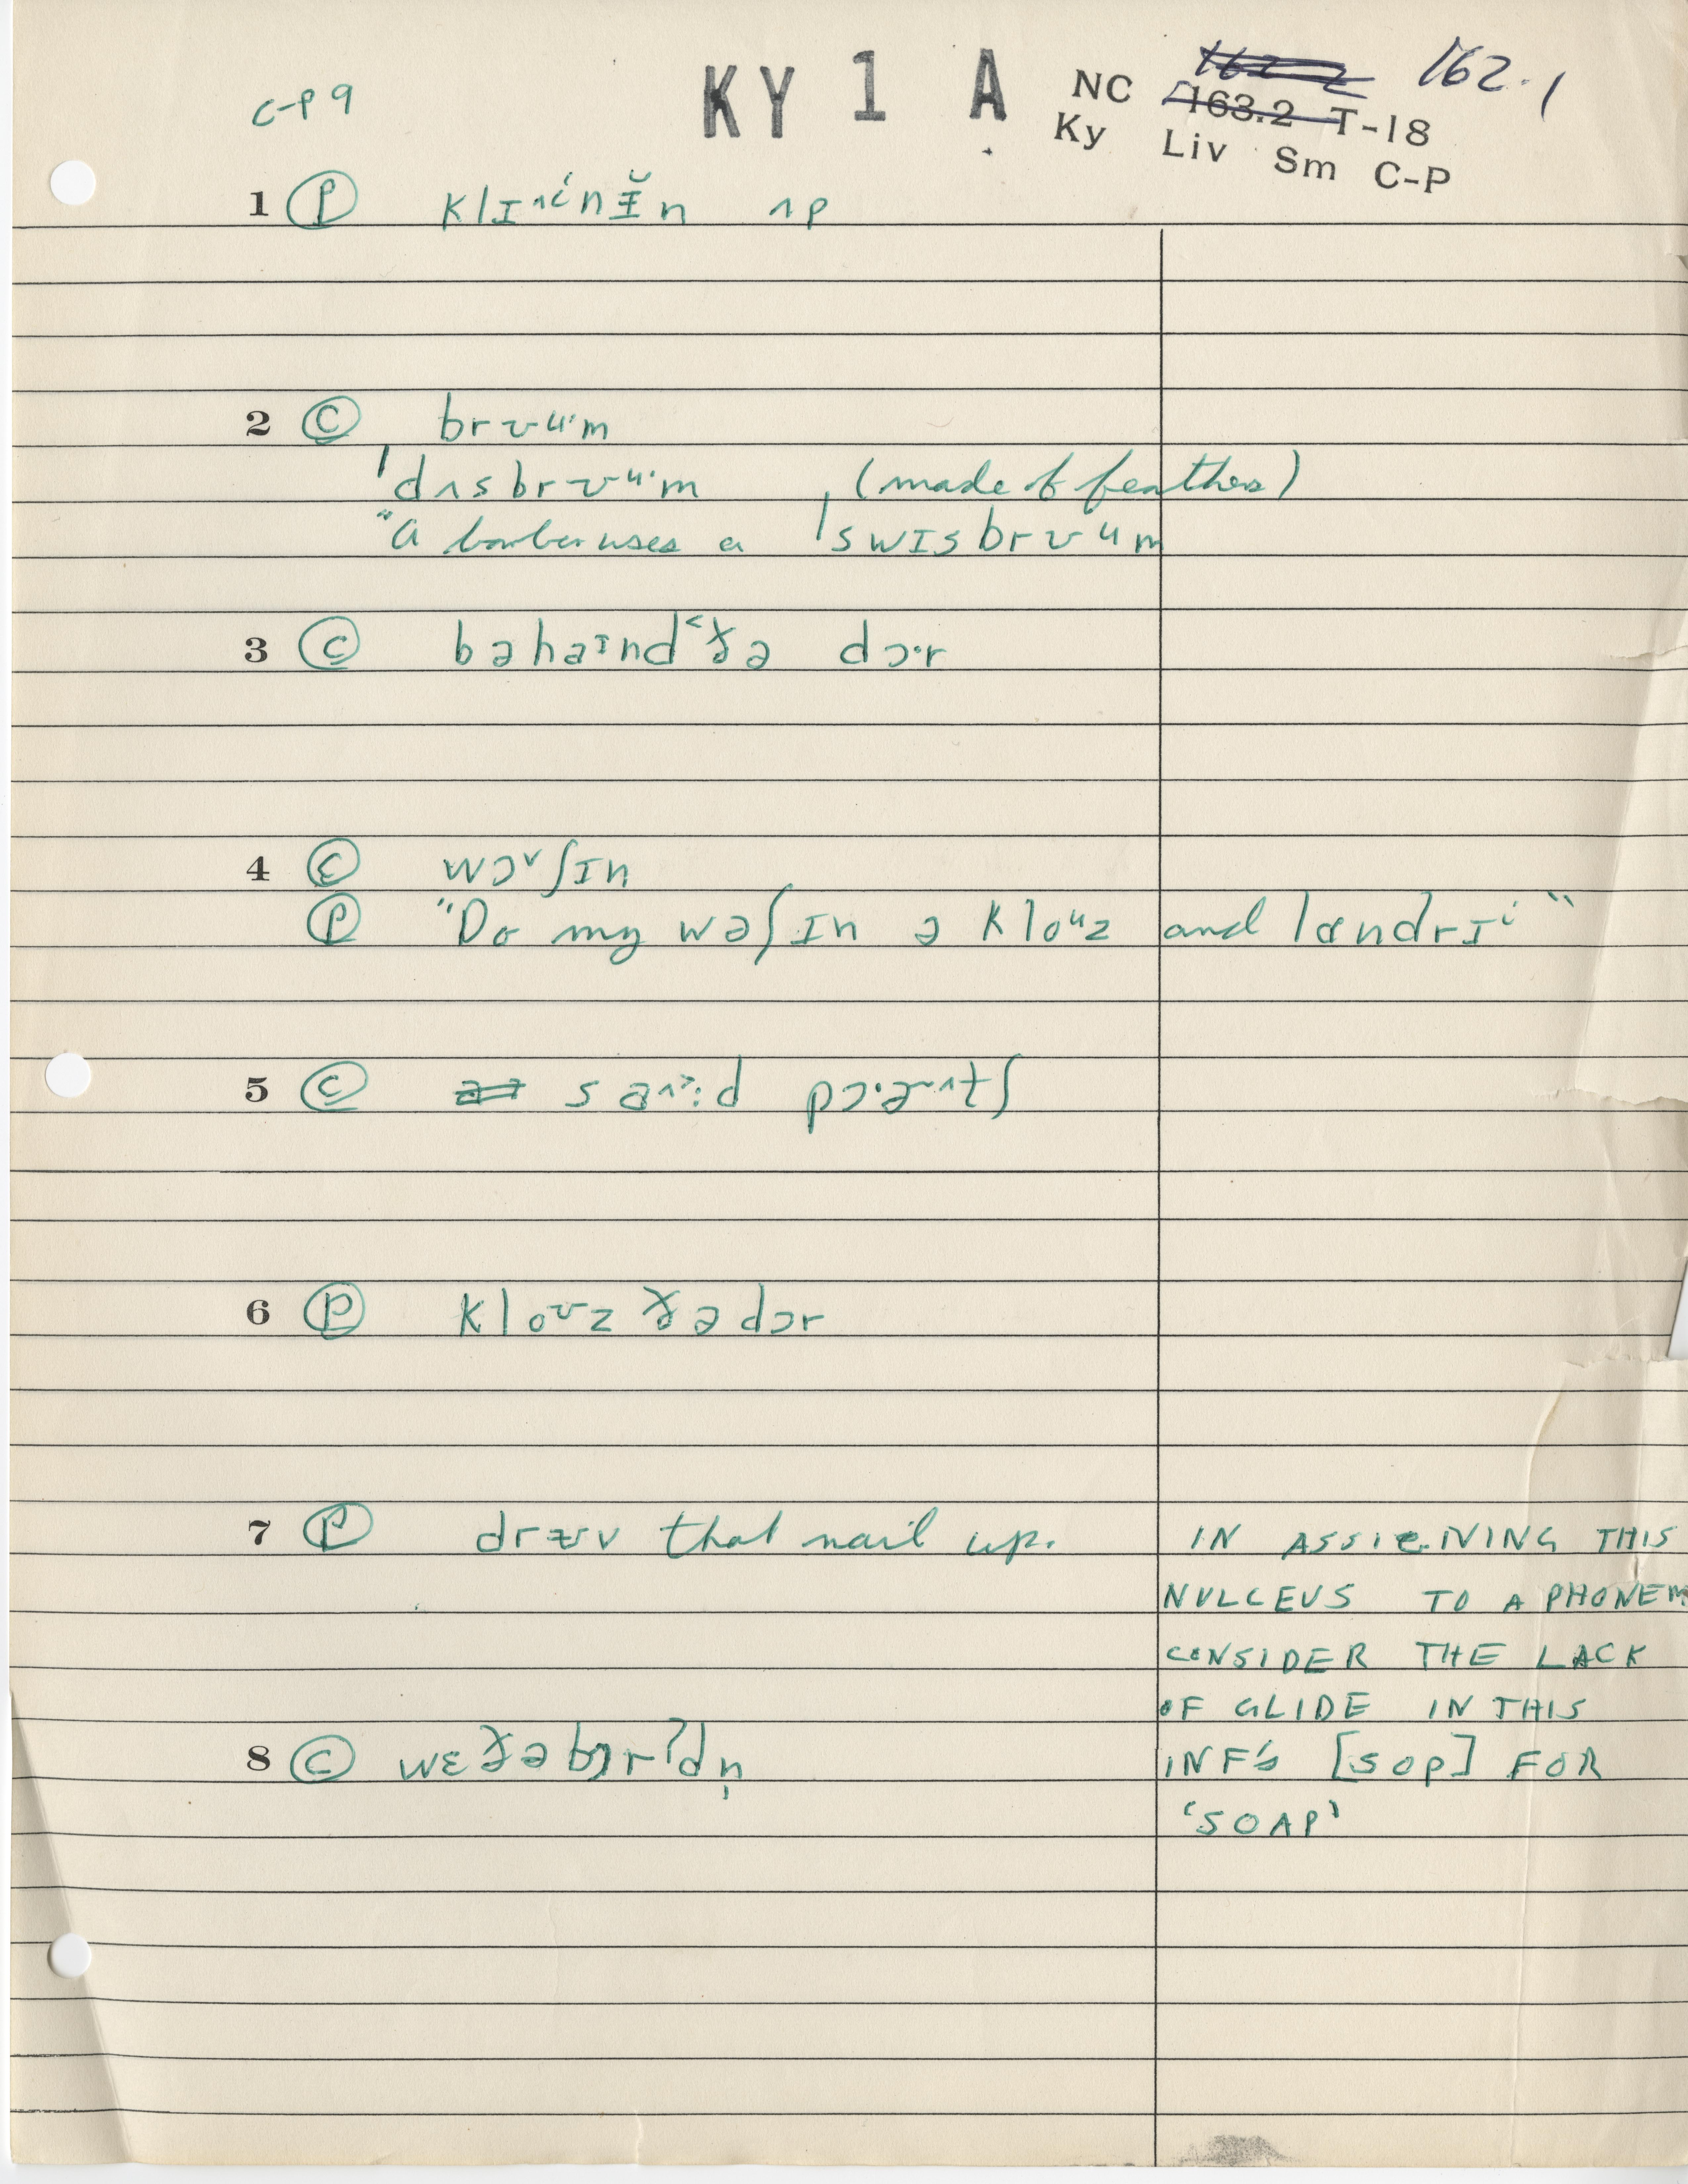 C-P 9
KY 1 A
NC 163.2 T-18 162.1
Ky Liv Sm C-P
1 Ⓟ klɪ^inɪ̵̆n ʌp
2 Ⓒ brʊʉ·m
ˈdʌsbrʊʉ·m (made of feathers)
"A barber uses a ˈswɪsbrʊʉm
3 Ⓒ bəhaɪnd˂ð̵ə dɔ·r
4 Ⓒ wɔ˅ʃɪn
Ⓟ "Do my wəʃɪn ə kloʉz and lɑndrɪⁱ"
5 Ⓒ pɔ·ə^tʃ
6 Ⓟ kloʊz ðə dɔr
7 Ⓟ that nail up.
IN ASSIGNING THIS
NULCEUS TO A PHONEM
CONSIDER THE LACK
OF GLIDE IN THIS
8 Ⓒ wɛðəbɔrʔdn̩
INF'S [sop] FOR
'SOAP'